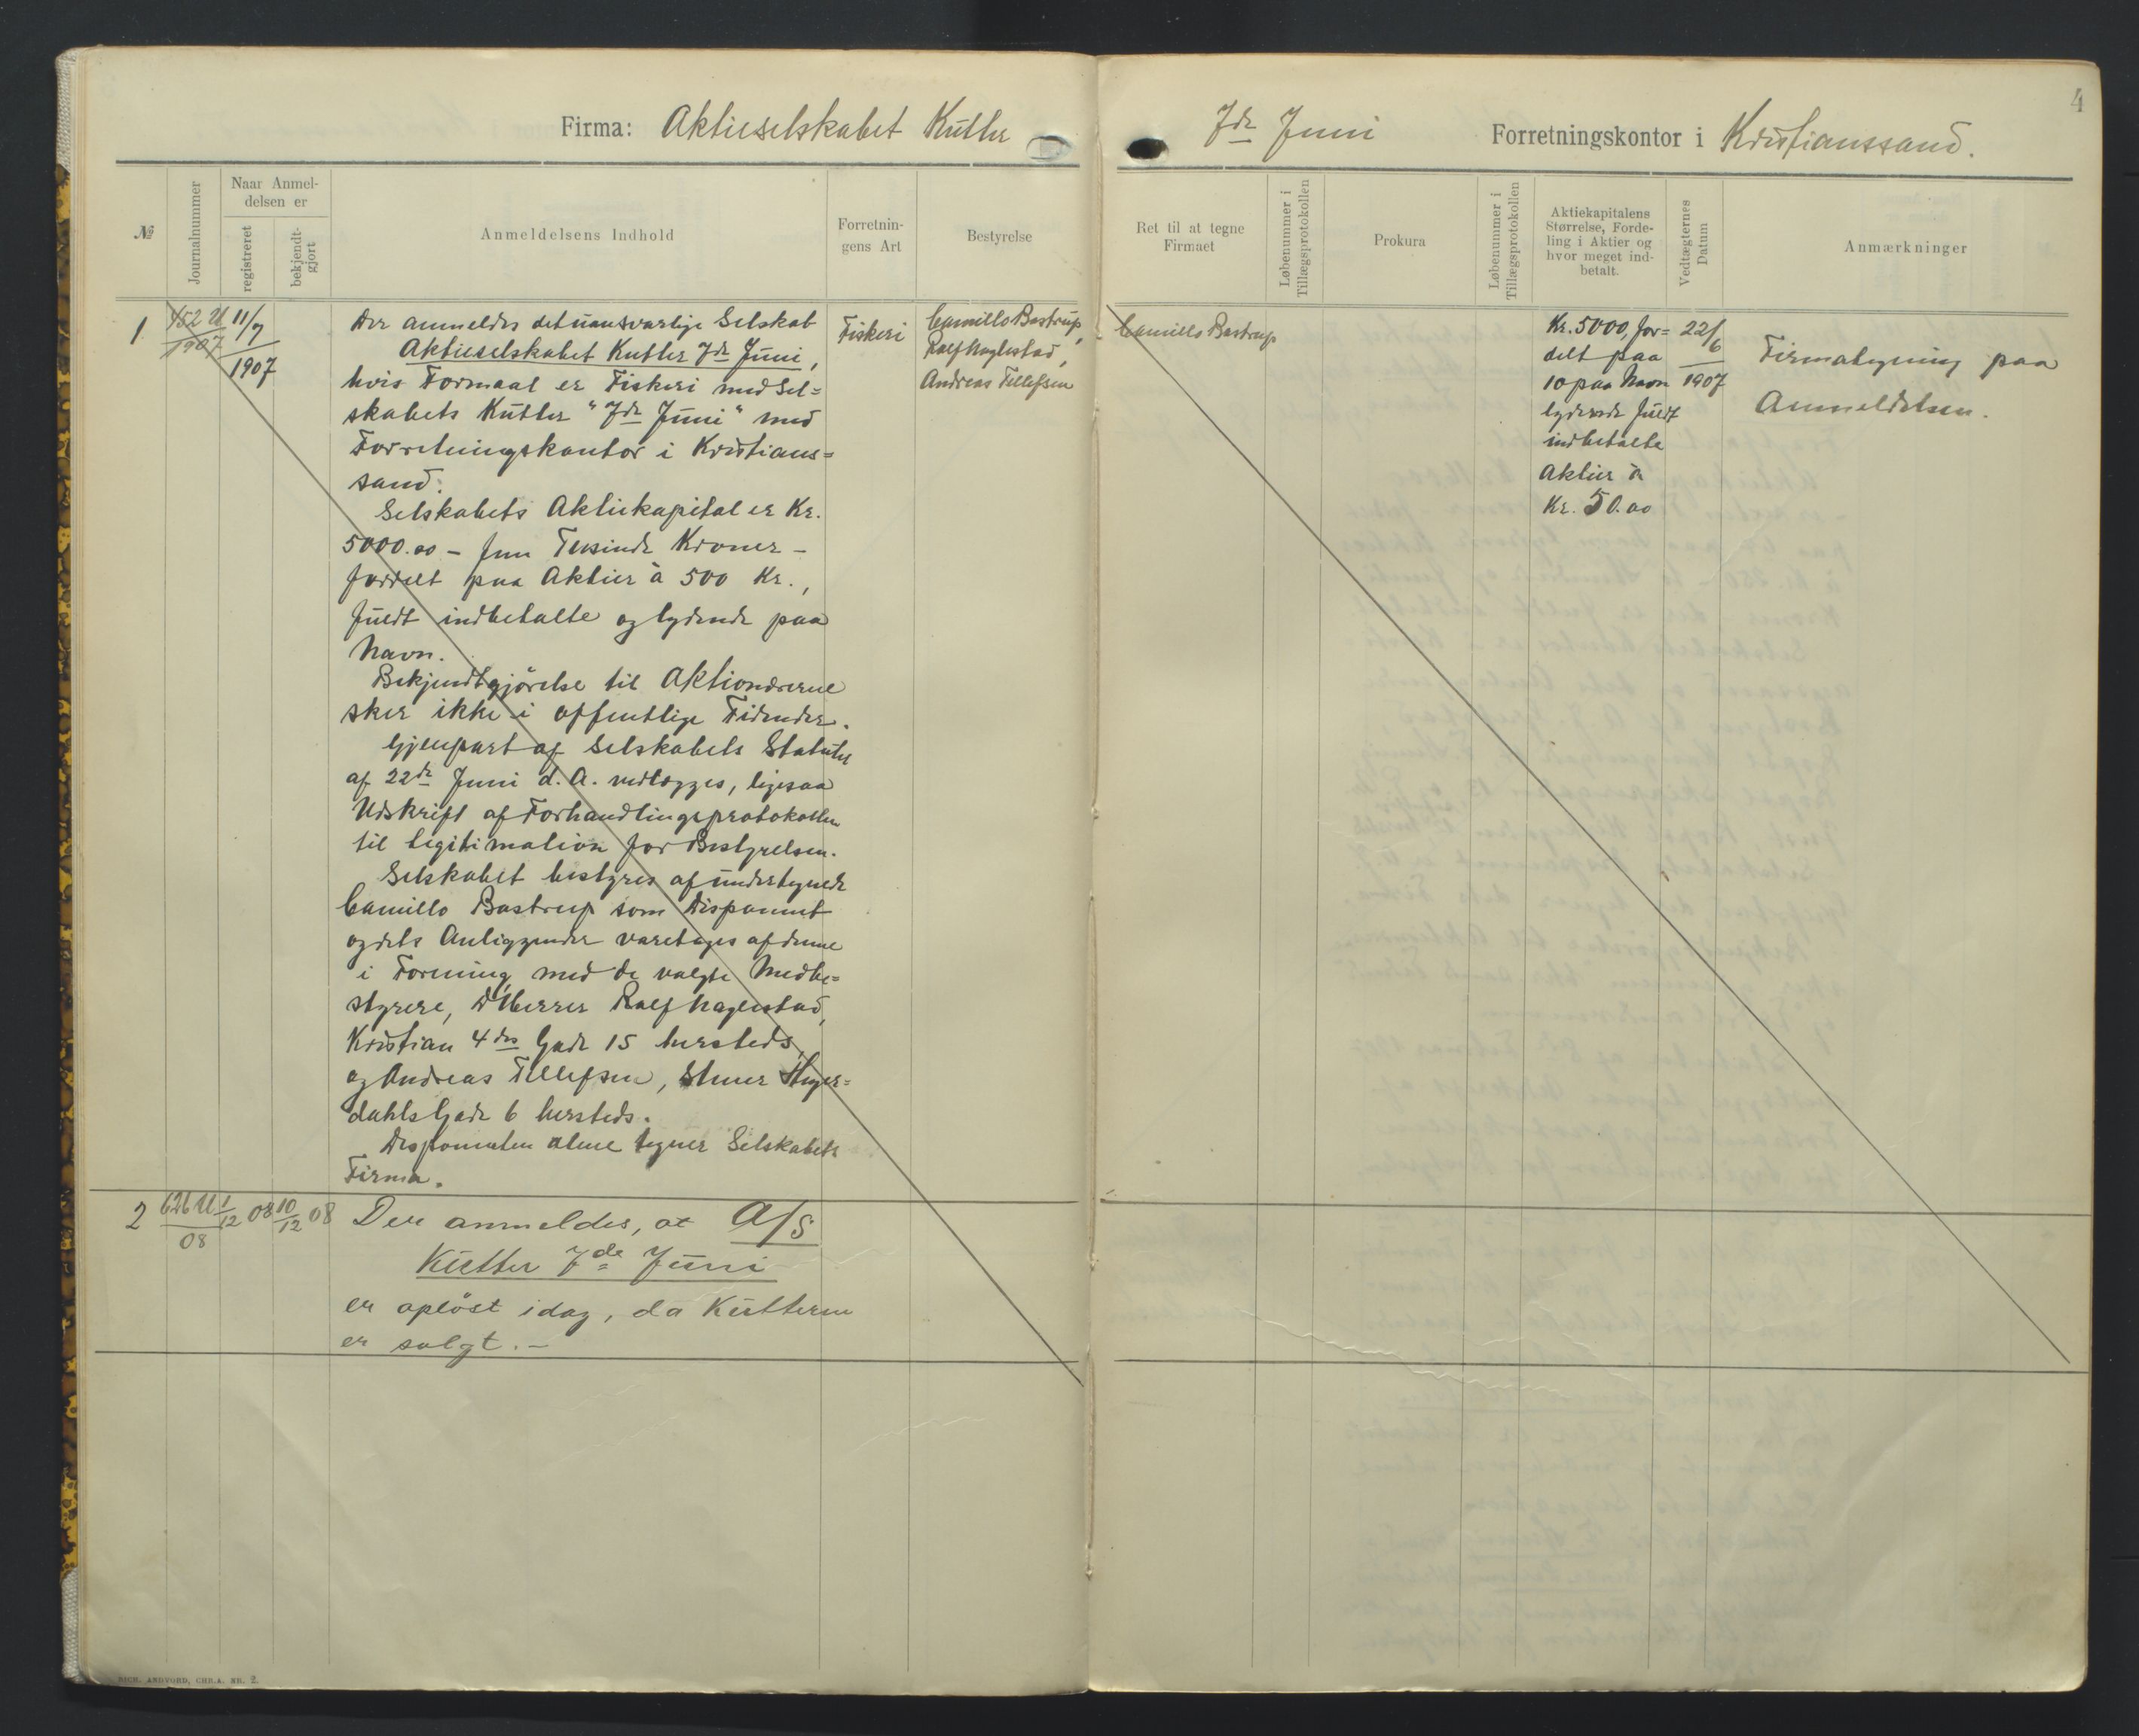 Firma: Aktieselskabet Kutter
7de Juni
Forretningskontor i Kristianssand.
4
№
Journalnummer
Naar Anmel-
delsen er
registreret
bekjendt-
gjort
Anmeldelsens Indhold
Forretnin-
gens Art
Bestyrelse
Ret til at tegne
Firmaet
Løbenummer i
Tillægsprotokollen
Prokura
Løbenummer i
Tillægsprotokollen
Aktiekapitalens
Størrelse, Forde-
ling i Aktier og
hvor meget ind-
betalt.
Vedtægternes
Datum
Anmærkninger
1
452 U
1907
11/7
1907
Der anmeldes det uansvarlige Selskab
Aktieselskabet Kutter 7de Juni,
hvis Formaal er Fiskeri med Sel=
skabets Kutter "7de Juni" med
Forretningskontor i Kristians=
sand.
Selskabets Aktiekapital er Kr.
5000.00 – fem Tusinde Kroner –
fordelt paa Aktier à 500 Kr.,
fuldt indbetalte og lydende paa
Navn.
Bekjendtgjörelse til Aktionærerne
sker ikke i offentlige Tidender.
Gjenpart af Selskabets Statuter
af 22de Juni d. A. vedlægges, ligesaa
Udskrift af Forhandlingsprotokollen
til Legitimation for Bestyrelsen.
Selskabet bestyres af undertegnede
Camillo Bastrup som Disponent
og dets Anliggender varetages af denne
i Forening med de valgte Medbe=
styrere, D'Herrer Ralf Naglestad,
Kristian 4des Gade 15 hersteds,
og Andreas Tellefsen, Steener Heyer=
dahls Gade 6 hersteds.
Disponenten alene tegner Selskabets
Firma.
Fiskeri
Camillo Bastrup,
Ralf Naglestad,
Andreas Tellefsen
Camillo Bastrup
Kr. 5000, for=
delt paa
10 paa Navn
lydende fuldt
indbetalte
Aktier à
Kr. 50.00
22/6
1907
Firmategning paa
Anmeldelsen.
2
626 U
08
1/12 08
10/12 08
Der anmeldes, at A/S
Kutter 7de Juni
er oplöst idag, da Kutteren
er solgt. –
RICH. ANDVORD, CHR.A. NR. 2.